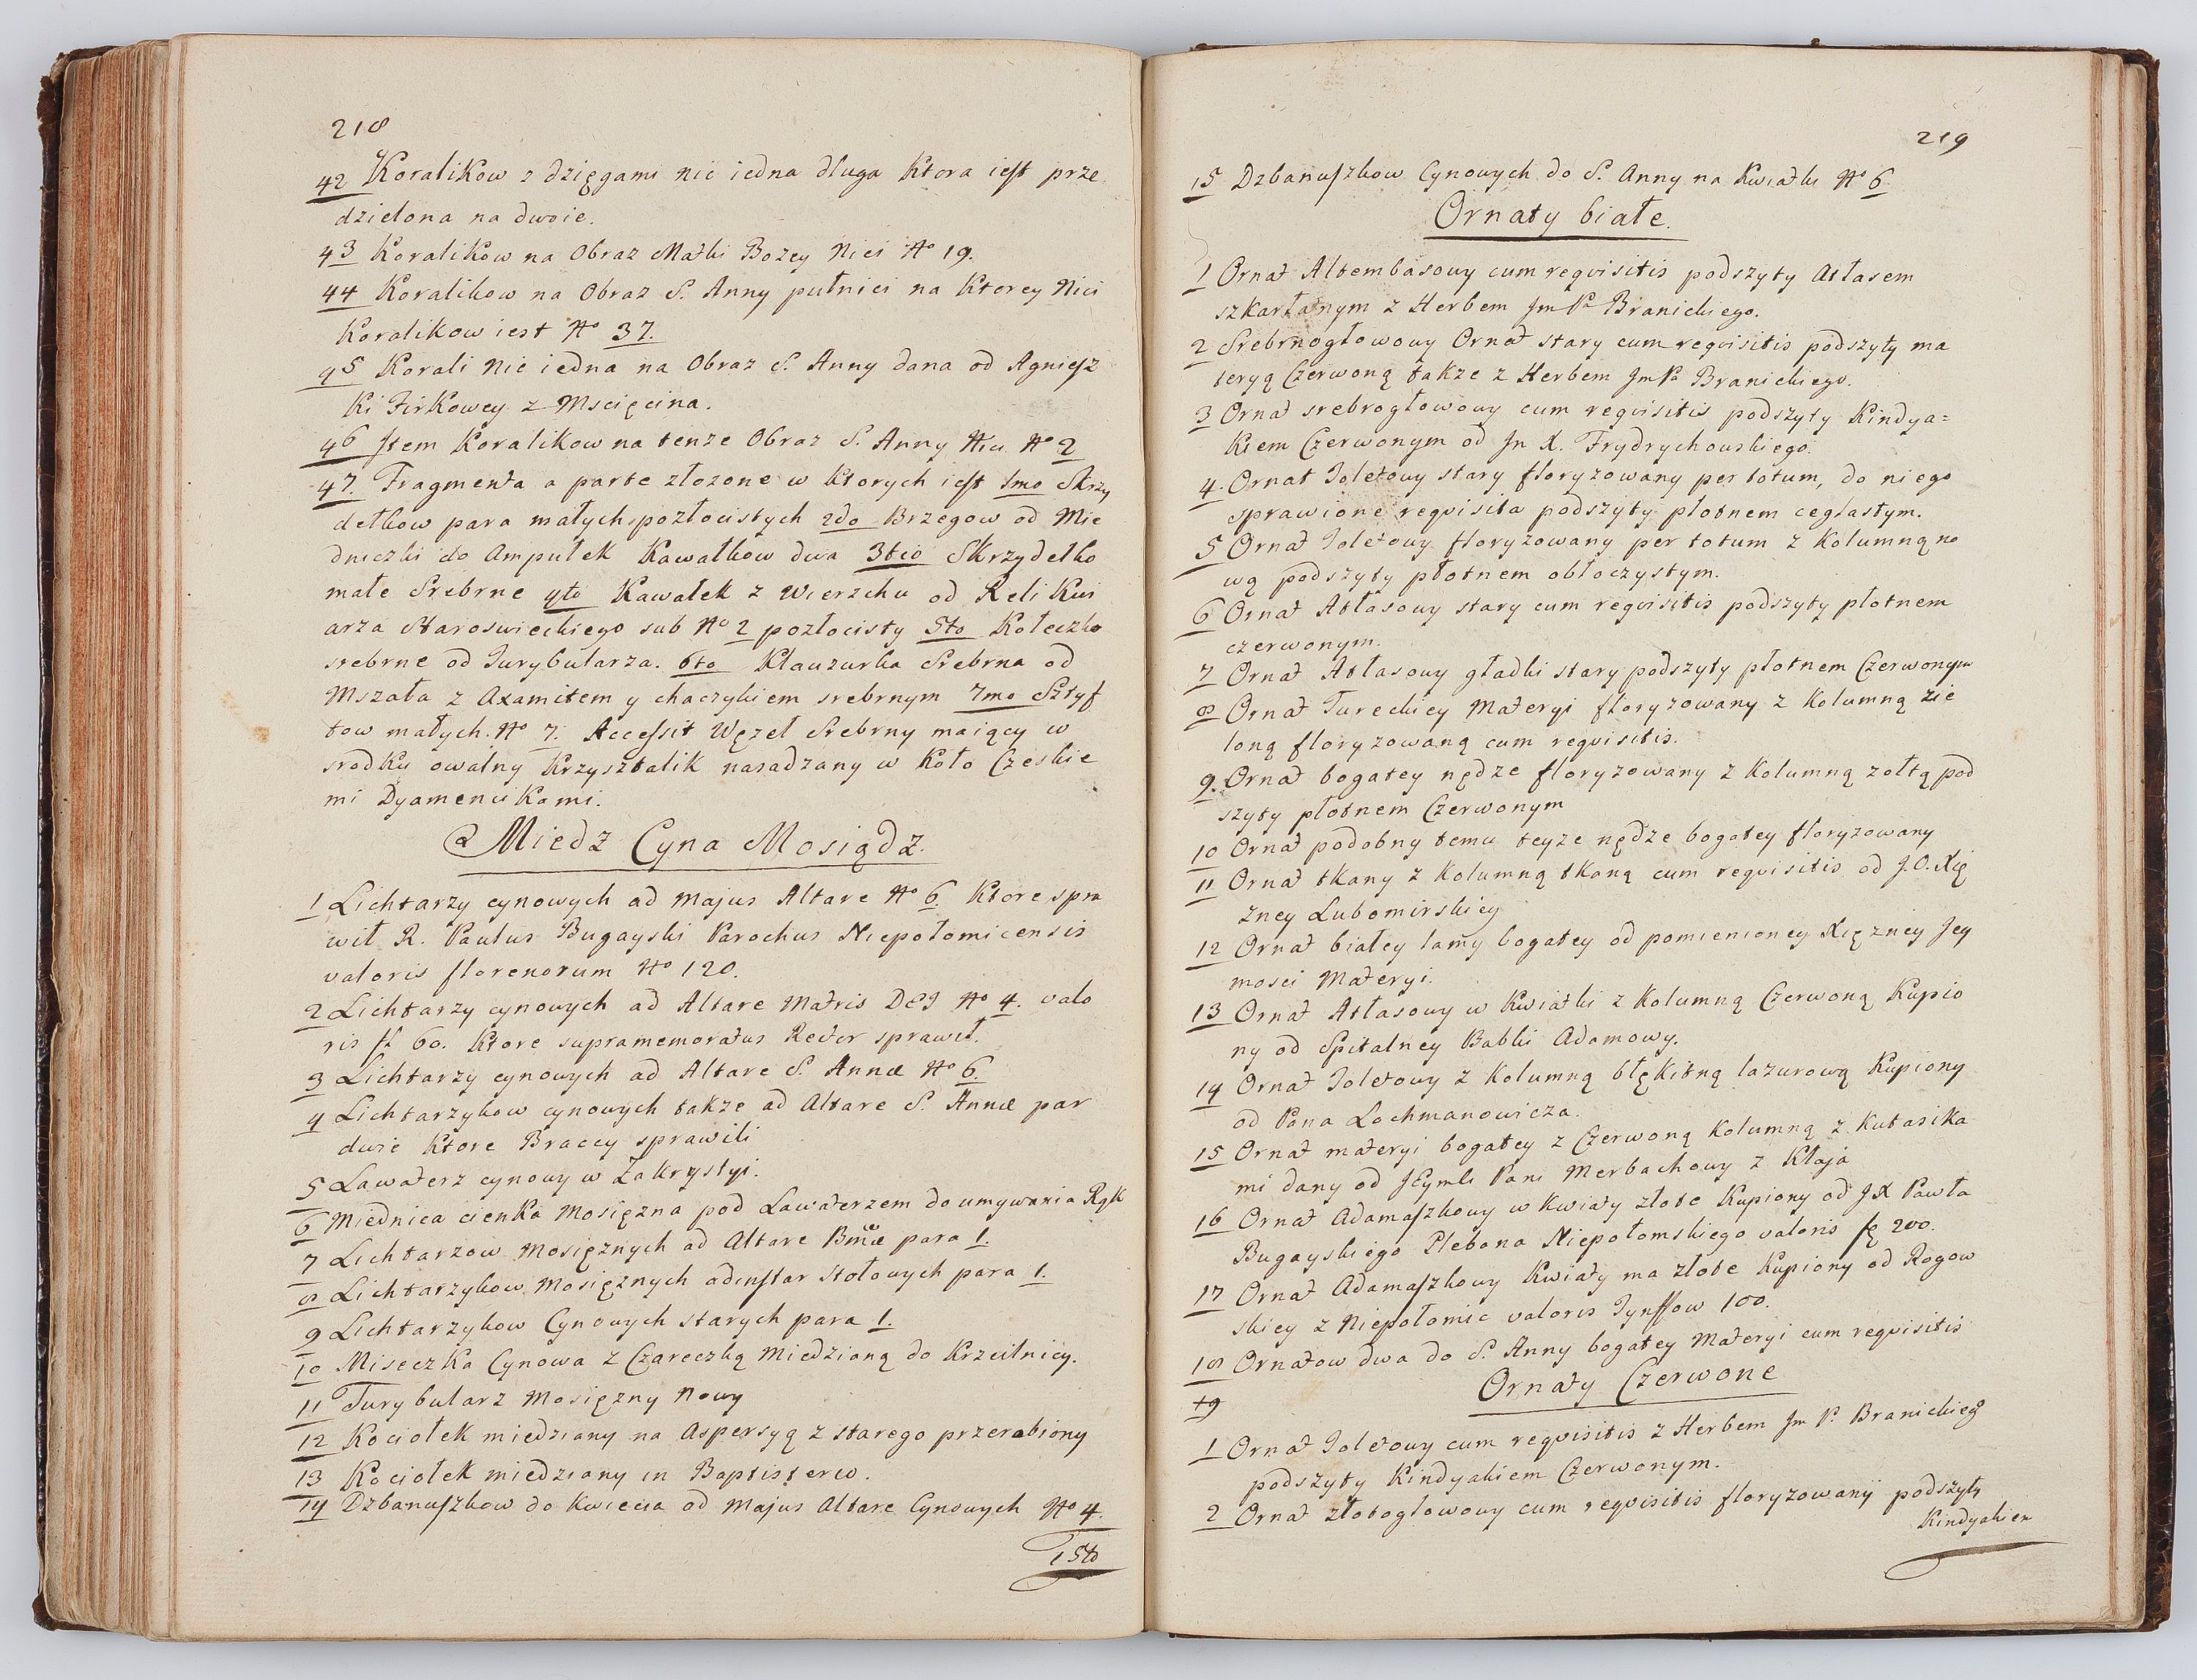 218
42 Koralikow z dzięgami nić iedna długa Ktora iest prze
dzielona na dwoie.
43 Koralikow na Obraz Matki Bożey Nici No 19.
44 Koralikow na Obraz S. Anny pułnici na Ktorey Nici
Koralikow iest No 37.
45 Korali Nić iedna na Obraz S. Anny dana od Agniesz
ki Firkowey z Mscięcina.
46 Item Koralikow na tenze Obraz S. Anny Nici No 2
47. Fragmenta a parte złozone w Ktorych iest 1mo Skrzy
dełkow para małych pozłocistych 2do Brzegow od Mie
dniczki do Ampułek Kawałkow dwa 3tio Skrzydełko
małe Srebrne 4to Kawałek z Wierzchu od Relikwi
arza Staroswieckiego sub No 2 pozłocisty 5to Kołeczko
srebrne od Turybularza. 6to Klauzurka Srebrna od
Mszała z Axamitem y chaczykiem srebrnym 7mo Sztyf
tow małych. No 7. Accessit Węzeł Srebrny maiący w
srodku owalny Krzysztalik nasadzany w Koło Czeskie
mi Dyamencikami.
Miedz Cyna Mosiądz.
1 Lichtarzy cynowych ad Majus Altare No 6. Ktore spra
wił R. Paulus Bugayski Parochus Niepołomicensis
valoris florenorum No 120.
2 Lichtarzy cynowych ad Altare Matris DEI No 4. valo
ris fl 60. Ktore supramemoratus Rector sprawił.
3 Lichtarzy cynowych ad Altare S. Annæ No 6.
4 Lichtarzykow cynowych takze ad Altare S. Annæ par
dwie Ktore Braccy sprawili
5 Lawaterz cynowy w Zakrystyi.
6 Miednica cienka Mosięzna pod Lawaterzem do umywania Rąk
7 Lichtarzow Mosięznych ad Altare Bmæ para 1.
8 Lichtarzykow Mosięznych adinstar Stołowych para 1.
9 Lichtarzykow Cynowych starych para 1.
10 Miseczka Cynowa z Czareczką Miedzioną do Krzcilnicy.
11 Turybularz Mosięzny Nowy
12 Kociołek miedziany na Aspersyą z starego przerabiony
13 Kociołek miedziany in Baptisterio.
14 Dzbanuszkow do Kwiecia od Majus Altare Cynowych No 4.
15to
219
15 Dzbanuszkow Cynowych do S. Anny na Kwiatki No 6.
Ornaty białe.
1 Ornat Altembasowy cum reqvisitis podszyty Atłasem
szkarłatnym z Herbem Jm Pa Branickiego.
2 Srebrnogłowowy Ornat stary cum reqvisitis podszyty ma
teryą Czerwoną takze z Herbem Jm Pa Branickiego.
3 Ornat srebrogłowowy cum reqvisitis podszyty Kindya=
kiem Czerwonym od Jn X. Frydrychowskiego.
4. Ornat Toletowy stary floryzowany per totum, do niego
sprawione reqvisita podszyty płotnem ceglastym.
5 Ornat Toletowy floryzowany per totum z Kolumną no
wą podszyty płotnem obłoczystym.
6 Ornat Atłasowy stary cum reqvisitis podszyty płotnem
czerwonym.
7 Ornat Atłasowy gładki stary podszyty płotnem Czerwonym
8 Ornat Tureckiey Materyi floryzowany z Kolumną zie
loną floryzowaną cum reqvisitis.
9. Ornat bogatey nędze floryzowany z Kolumną zołtą pod
szyty płotnem Czerwonym
10 Ornat podobny temu teyze nędze bogatey floryzowany
11 Ornat tkany z Kolumną tkaną cum reqvisitis od J.O. Xię
zney Lubomirskiey
12 Ornat białey lamy bogatey od pomienioney Xięzney Jey
mosci Materyi.
13 Ornat Atłasowy w Kwiatki z Kolumną Czerwoną Kupio
ny od Spitalney Babki Adamowy.
14 Ornat Toletowy z Kolumną błękitną lazurową Kupiony
od Pana Lochmanowicza.
15 Ornat materyi bogatey z Czerwoną Kolumną z Kutasika
mi dany od JEymli Pani Merbachowy z Kłaja
16 Ornat Adamaszkowy w Kwiaty złote Kupiony od JX Pawła
Bugayskiego Plebana Niepołomskiego valoris 200.
17 Ornat Adamaszkowy Kwiaty ma złote Kupiony od Rogow
skiey z Niepołomic valoris Tynffow 100.
18 Ornatow dwa do S. Anny bogatey Materyi cum reqvisitis
Ornaty Czerwone
19
1 Ornat Toletowy cum reqvisitis z Herbem Jm P. Branickieg
podszyty Kindyakiem Czerwonym.
2 Ornat złotogłowowy cum reqvisitis floryzowany podszyty
Kindyakiem